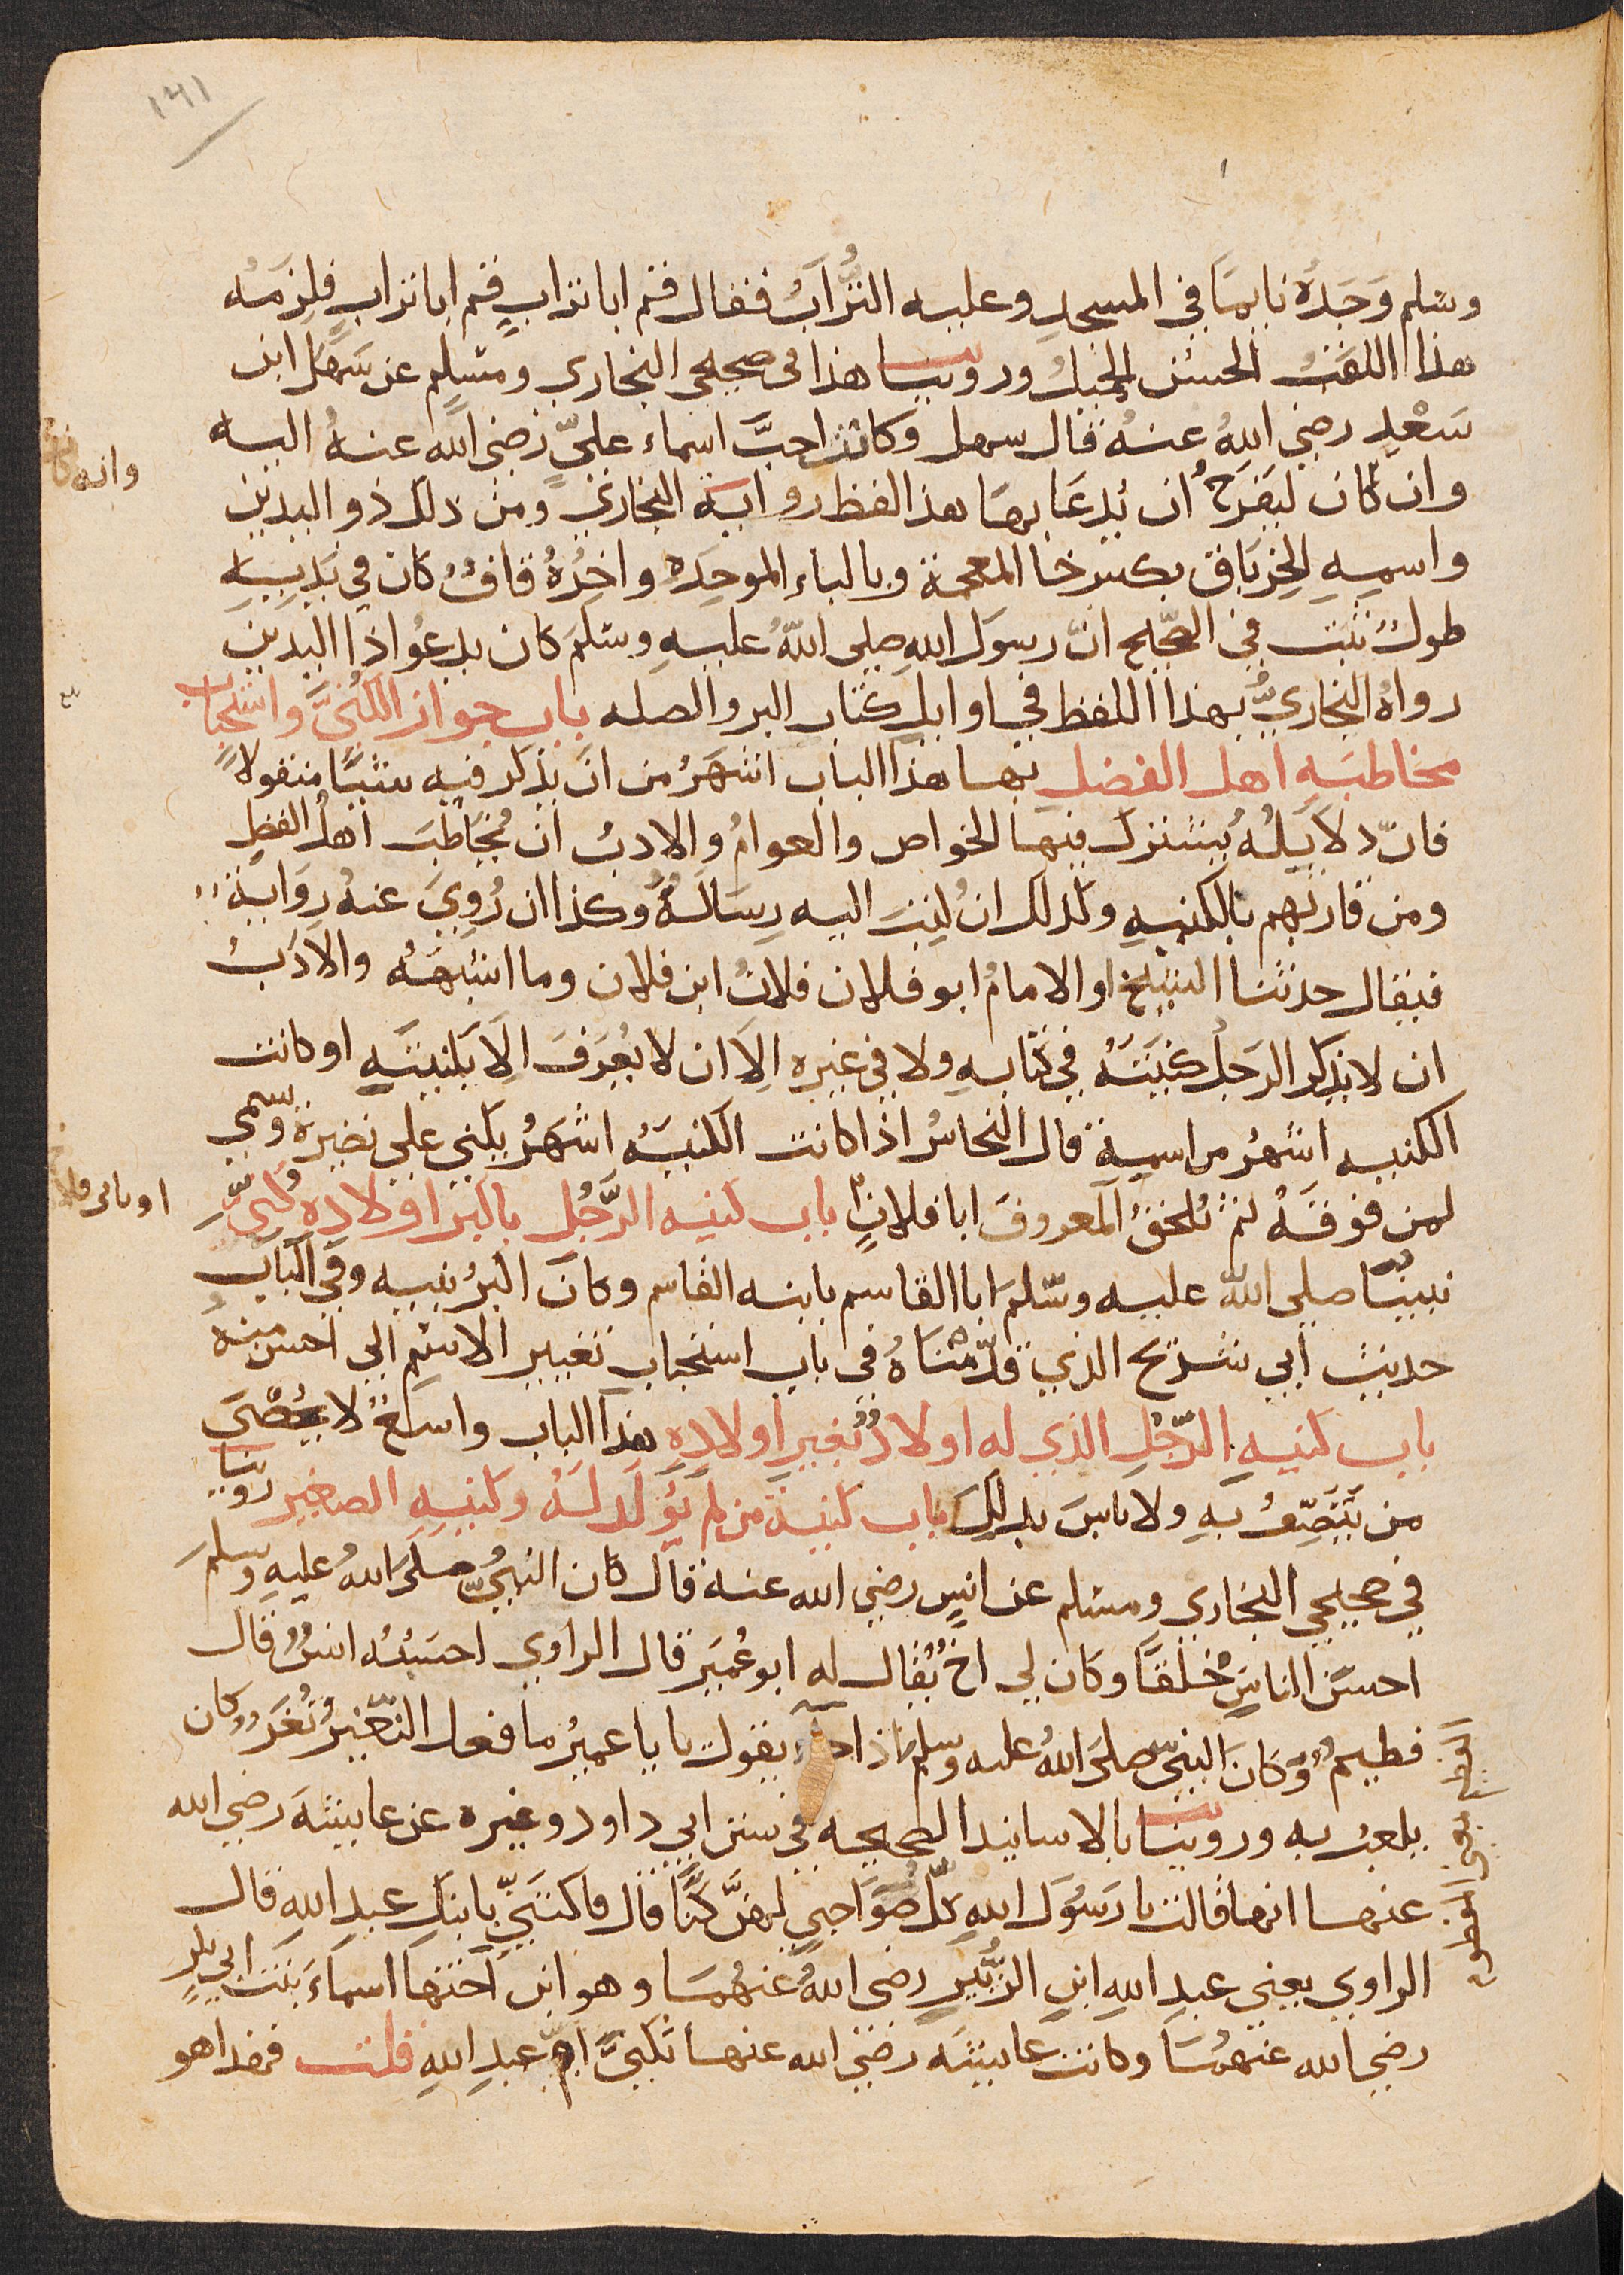 ١٣١
وسلم وَجَدَهُ نايمًا في المسجدِ وعليه التُّرابُ فقال قم ابا ترابٍ قم ابا ترابٍ فلزمَهُ
هذا اللقبُ الحسنُ الجميلُ وروينا هذا في صحيحي البخاري ومسلمٍ عن سَهْل ابن
سَعْدٍ رضي اللهُ عنهُ قال سهل وكانت احبَّ اسماء عليٍّ رضي الله عنهُ اليه
وان كان ليَفرَحُ ان يُدعَا بها هذا لفظ رواية البخاري ومن ذلك ذو اليدين
واسمهِ الخِربَاق بكسر خا المعجمة وبالباء الموحِده واخِرُهُ قافٌ كان في يَدِيهِ
طولٌ ثبَتَ في الصّحيح انّ رسولَ اللهِ صلى اللهُ عليهِ وسلمَ كان يدعُوا ذا اليدين
رواهُ البخاريُّ بهذا اللفظ في اوايل كتاب البر والصله باب جواز الكُنَى واستحباب
مخاطبَهِ اهل الفضل بها هذا الباب اشهَرُ من انْ يذكر فيه شيًا منقولاً
فانّ دلايَلُهُ يشترك فيها الخواص والعوامُ والادبُ ان يُخَاطَبَ اهلُ الفضل
ومن قاربهم بالكنيهِ وكذلك ان كُتِبَتَ اليه رِسَالَهٌ وكذا ان رُوِيَ عنهُ رِوَايةٌ
فيقال حدثنا الشيخ او الامامُ ابو فلان فلانُ ابن فلان وما اشبَهَهُ والادَبُ
ان لا يذكر الرَجلُ كنيَتَهُ في كتابهِ ولا في غيرهِ اِلاَ ان لا يُعرَفَ اِلاَ بكنيَتَهِ او كانت
الكنيه اشهرُ من اسمهِ قال النحاسُ اذا كانت الكنيَهُ اشهَرُ يكني علي نضيرهِ وسمي
لمن فوقَهُ ثم تُلحقُ المعروفَ ابا فلانٍ باب كنيه الرَّجُل باكبرَ اولادهِ كُنِيَّ
نبينُا صلى اللهُ عليه وسلمَ ابا القاسم بابنه القاسم وكان اكبرُ بنيه وفي الباب
حديث ابي شريح الذي قدّمناهُ في باب استحباب تغيير الاسم الي احسن منهُ
باب كنيهِ الرّجُلِ الذي له اولادٌ بغيرِ اولادِهِ هذا الباب واسعٌ لا يُحْصَى
من يَتَصِفُ بهِ ولا باسَ بذلِكَ باب كنيةَ من لم يُولَدَ لَهُ وكنيهِ الصغير روينا
في صحيحي البخاري ومسلم عن انسٍ رضي الله عنهُ قال كان النبيُّ صلى اللهُ عليهِ وسلمَ
احسَنَ الناسِ خُلقًا وكان لي اخٌ يُقال له ابو عُمَيرَ قال الراوي احسَبُهُ انسٌ قال
فطيمٌ وكان النبيّ صلى اللهُ عليه وسلم اذا يقول يا با عميرُ ما فعل النّغيرُ نُغَرٌ كان
يلعبُ به وروينا بالاسانيد الصحيحه في سنن ابي داود وغيره عن عايشَهَ رضي الله
عنها انها قالت يا رَسُولَ اللهِ كلُّ صَوَاحِبي لهنَّ كُنًا قال فاكتنيّ بابنَكِ عبدِ اللهِ قال
الراوي يعني عبدِ اللهِ ابنِ الزُّبَيرِ رضي اللهُ عنهُمَا وهو ابن اختها اسماءَ بنت ابي بكرٍ
رضي الله عنهُما وكانت عايشَه رضي الله عنها تكنيَّ امّ عبدِ اللهِ قلت فهذا هو
وانه كان
او بابي فلا